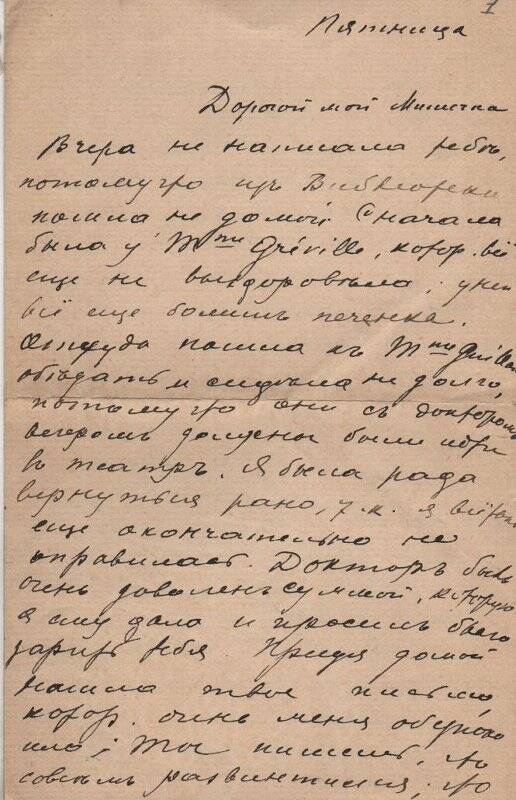 1
Пятница
Дорогой мой Мишечка
Вчера не написала тебѣ,
потому что изъ Библіотеки
пошла не домой. Сначала
была у Mme Gréville, котор. всё
еще не выздоровѣла; у нея
всё еще болитъ печенка.
Оттуда пошла къ Mme
обѣдать и сидѣла не долго,
потому что они съ докторомъ
вечеромъ должны были идти
въ театръ. Я была рада
вернуться рано, т.к. я всё
еще окончательно не
оправилась. Докторъ былъ
очень доволенъ суммой, которую
я ему дала и просилъ благо
дарить тебя. Придя домой
нашла твое письмо,
котор. очень меня обезпоко
ило; ты пишешь, что
совсѣмъ развинтился; что